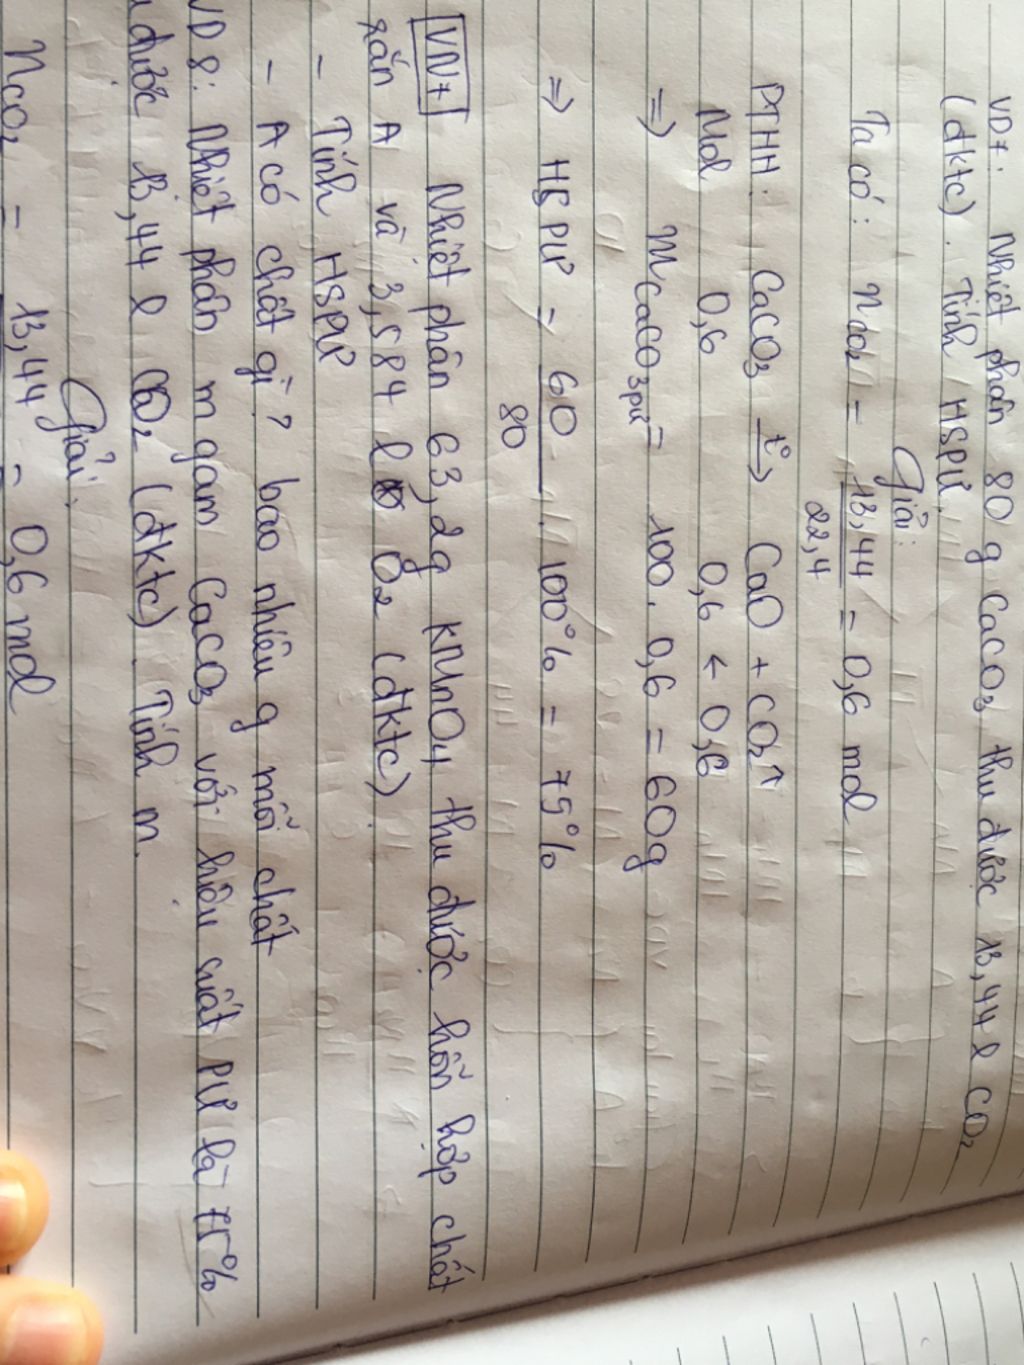 VD7: Nhiệt phân 80 g CaCO₃ thu được 13,44 l CO₂
(đktc). Tính HSPƯ.
Giải:
Ta có: nCO₂ = 13,44 / 22,4 = 0,6 mol
PTHH: CaCO₃ –t°→ CaO + CO₂↑
Mol 0,6 0,6 ← 0,6
=> mCaCO₃pư = 100. 0,6 = 60g
=> HSPƯ = 60 / 80 . 100% = 75%
VN7 Nhiệt phân 63,2g KMnO₄ thu được hỗn hợp chất
rắn A và 3,584 l O₂ (đktc).
- Tính HSPƯ
- A có chất gì? bao nhiêu g mỗi chất
VD8: Nhiệt phân m gam CaCO₃ với hiệu suất PƯ là 75%
được 13,44 l CO₂ (đktc). Tính m.
Giải:
nCO₂ = 13,44 = 0,6 mol